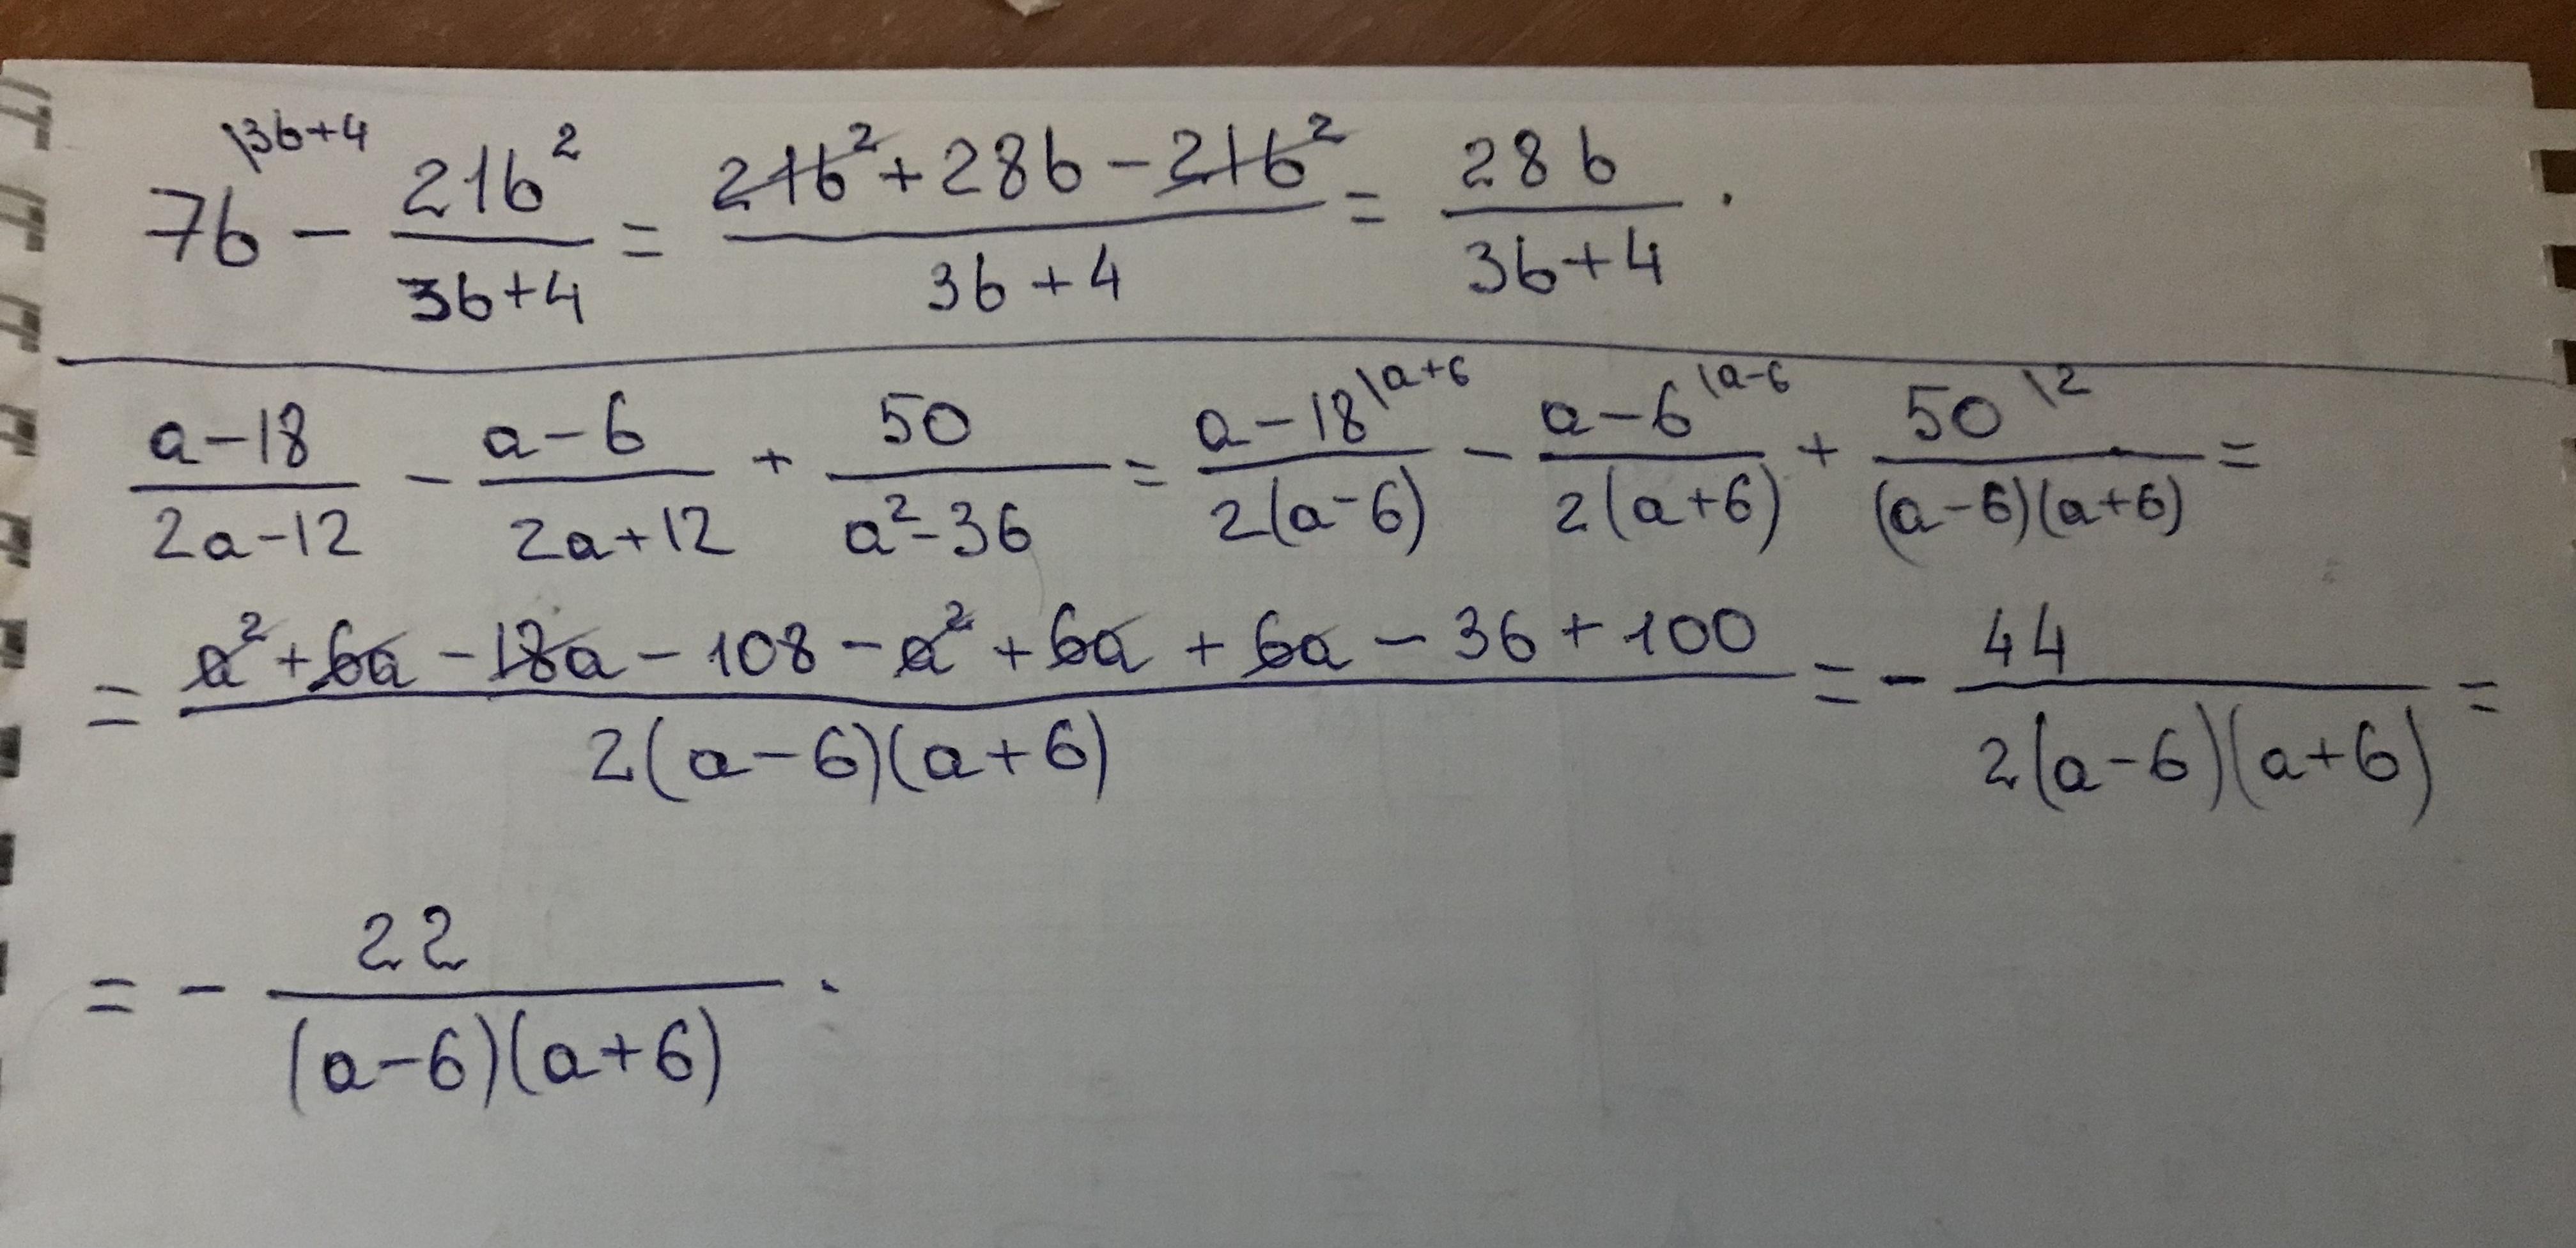 7b \3b+4 − 21b²/(3b+4) = (21b² + 28b − 21b²)/(3b+4) = 28b/(3b+4).
(a−18)/(2a−12) − (a−6)/(2a+12) + 50/(a²−36) = (a−18 \a+6)/(2(a−6)) − (a−6 \a−6)/(2(a+6)) + (50 \2)/((a−6)(a+6)) =
= (a² + 6a − 18a − 108 − a² + 6a + 6a − 36 + 100)/(2(a−6)(a+6)) = − 44/(2(a−6)(a+6)) =
= − 22/((a−6)(a+6)).